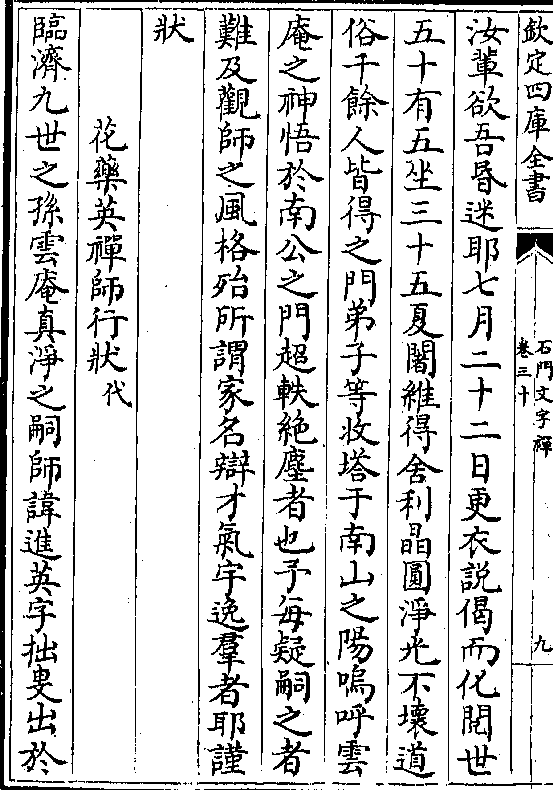 欽定四庫全書
石門文字禪
卷三十
九
汝輩欲吾昏迷耶七月二十二日更衣説偈而化閲世
五十有五坐三十五夏闍維得舍利晶圓淨光不壞道
俗千餘人皆得之門弟子等收塔于南山之陽嗚呼雲
庵之神悟於南公之門超軼絶塵者也予每疑嗣之者
難及觀師之風格殆所謂家名辯才氣宇逸羣者耶謹
狀
花藥英禪師行狀代
臨濟九世之孫雲庵真淨之嗣師諱進英字拙叟出於